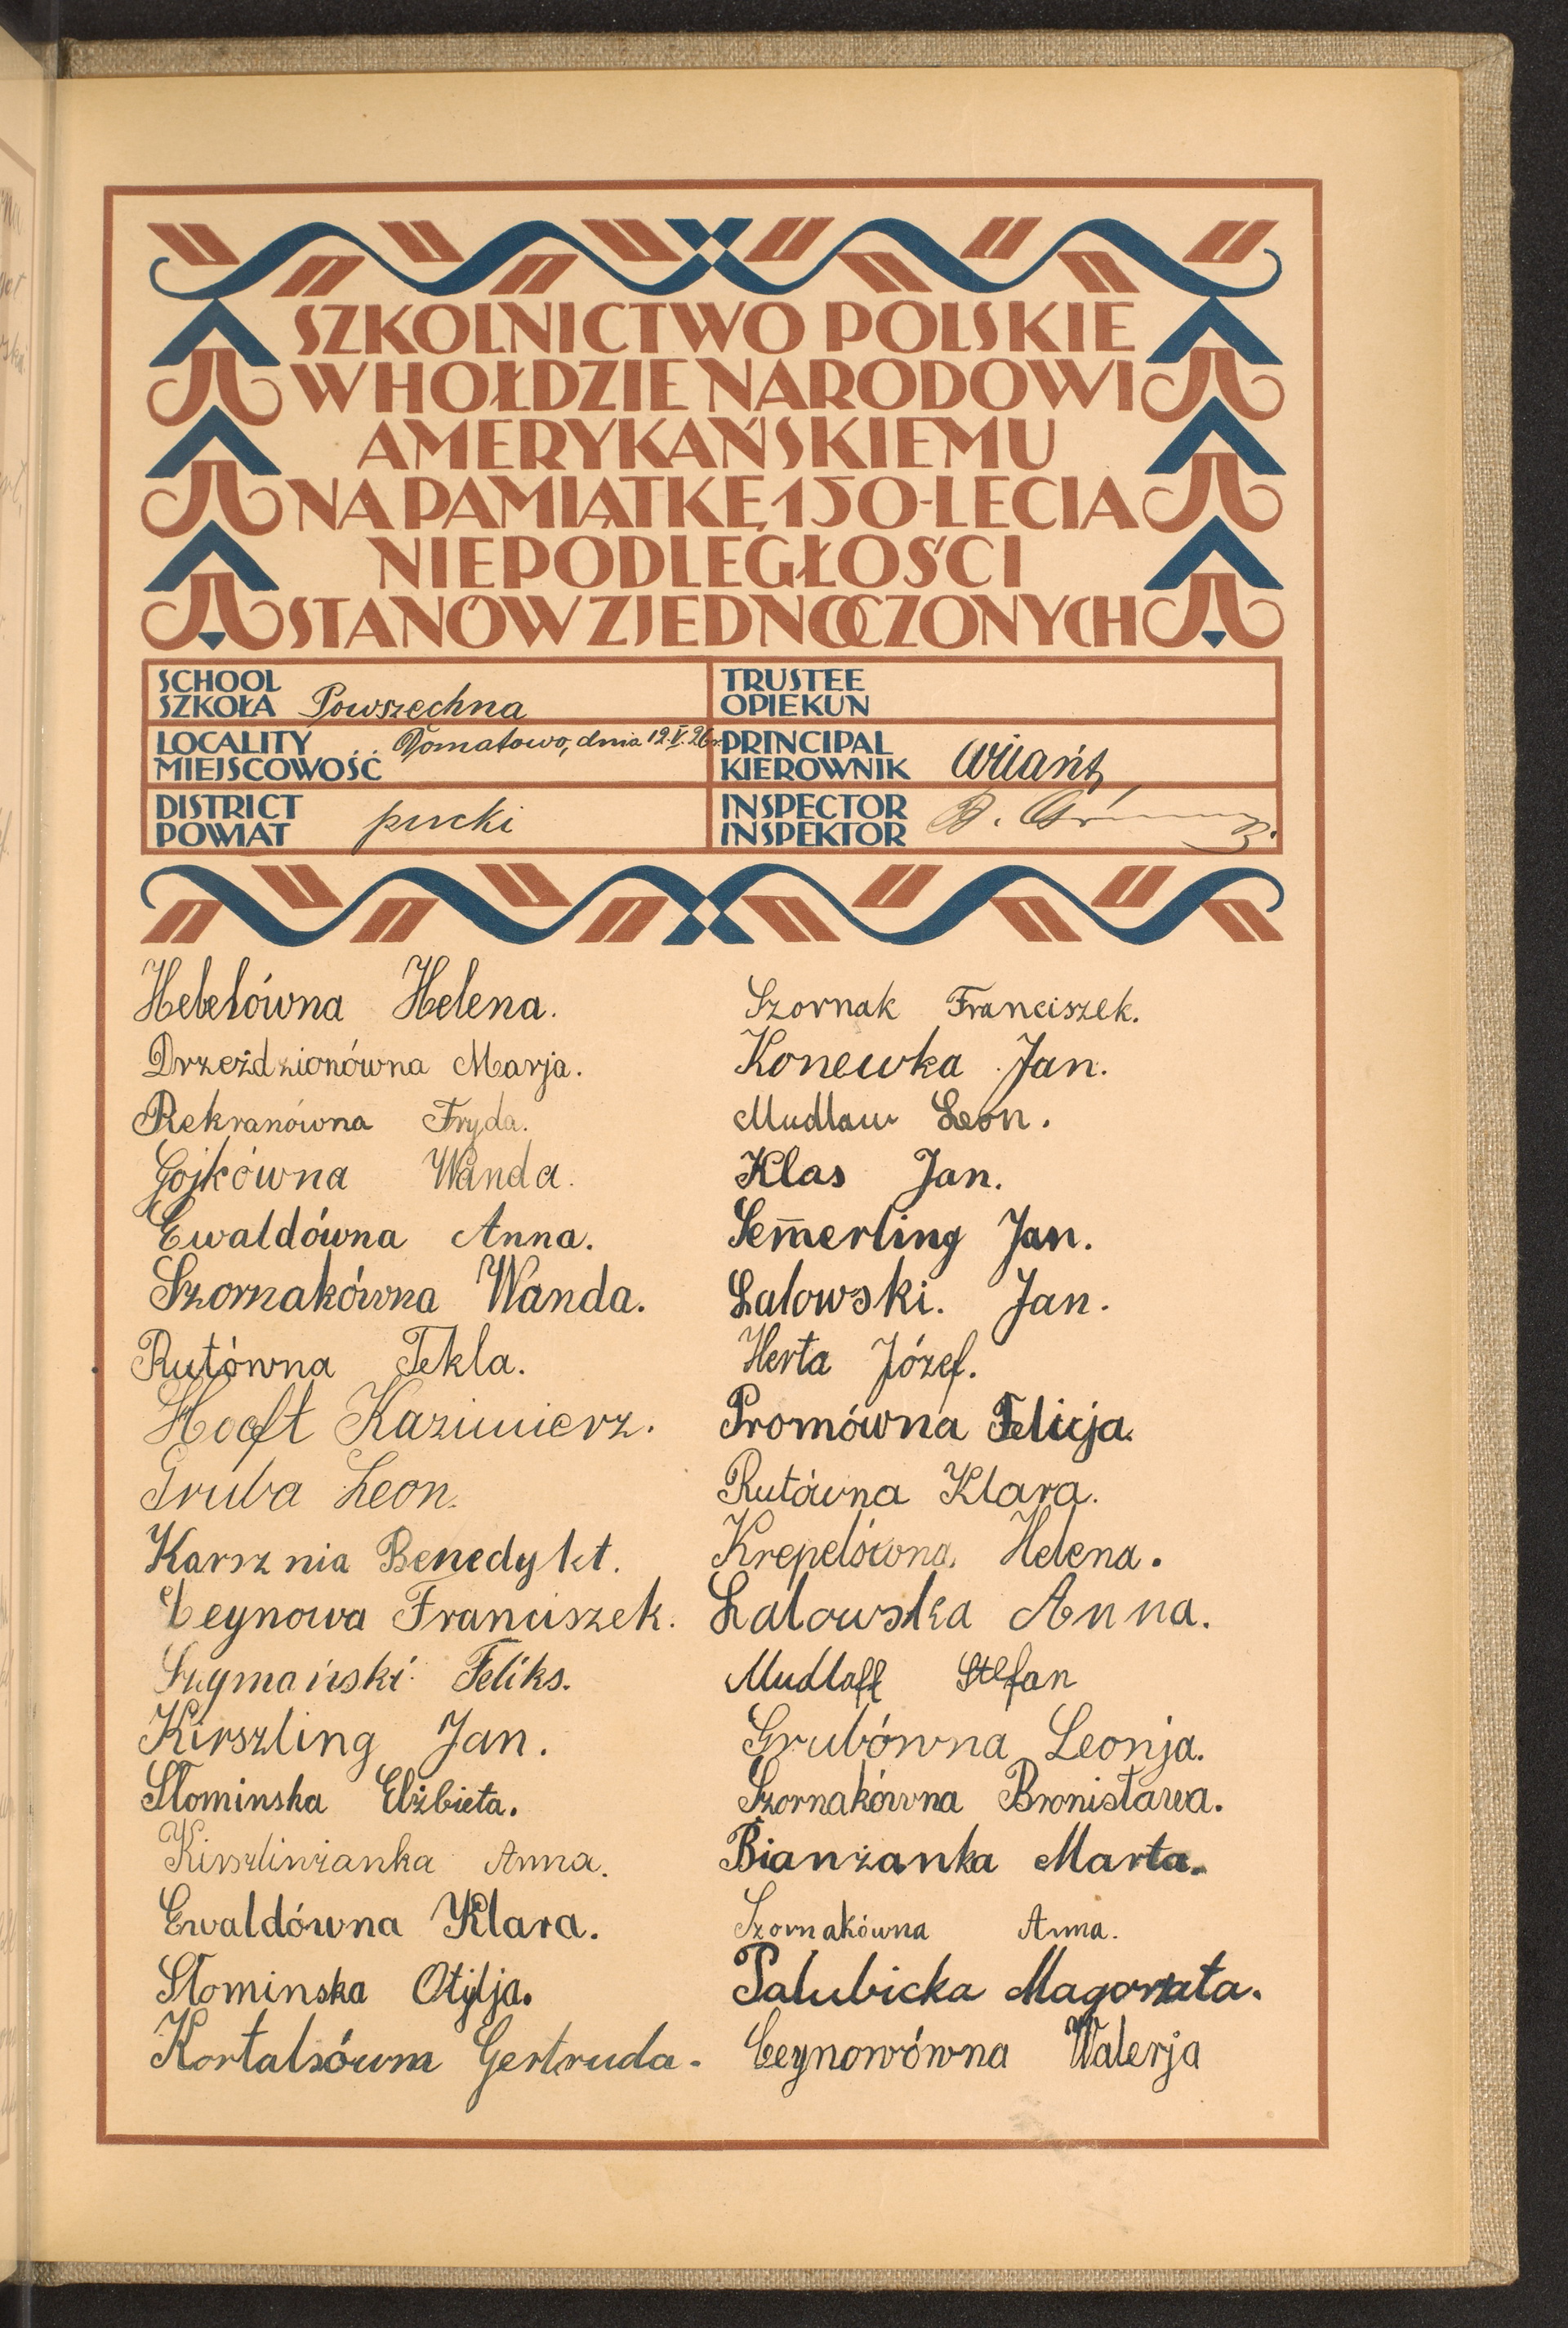 SZKOLNICTWO POLSKIE
W HOŁDZIE NARODOWI
AMERYKAŃSKIEMU
NA PAMIĄTKĘ 150-LECIA
NIEPODLEGŁOŚCI
STANÓW ZJEDNOCZONYCH
SCHOOL
SZKOŁA Powszechna
LOCALITY
MIEJSCOWOŚĆ Domatowo, dnia 12.V.26r.
DISTRICT
POWIAT pucki
TRUSTEE
OPIEKUN
PRINCIPAL
KIEROWNIK
INSPECTOR
INSPEKTOR B.
Hebelówna Helena.
Drzeżdzionówna Marja.
Rekranówna Fryda.
Gojkówna Wanda.
Ewaldówna Anna.
Szornakówna Wanda.
Rutówna Tekla.
Hooft Kazimierz.
Gruba Leon.
Karsznia Benedykt.
Ceynowa Franciszek.
Szymański Feliks.
Kirszling Jan.
Słominska Elżbieta.
Kirszlinżanka Anna.
Ewaldówna Klara.
Słominska Otylja.
Kortalsówna Gertruda.
Szornak Franciszek.
Konewka Jan.
Mudlaw Leon.
Klas Jan.
Sem̄erling Jan.
Lalowski. Jan.
Herta Józef.
Promówna Felicja.
Rutówna Klara.
Krepelówna, Helena.
Lalowska Anna.
Mudlaff Stefan
Grubówna Leonja.
Szornakówna Bronisława.
Bianżanka Marta.
Szornakówna Anna.
Palubicka Magorzata.
Ceynowówna Walerja